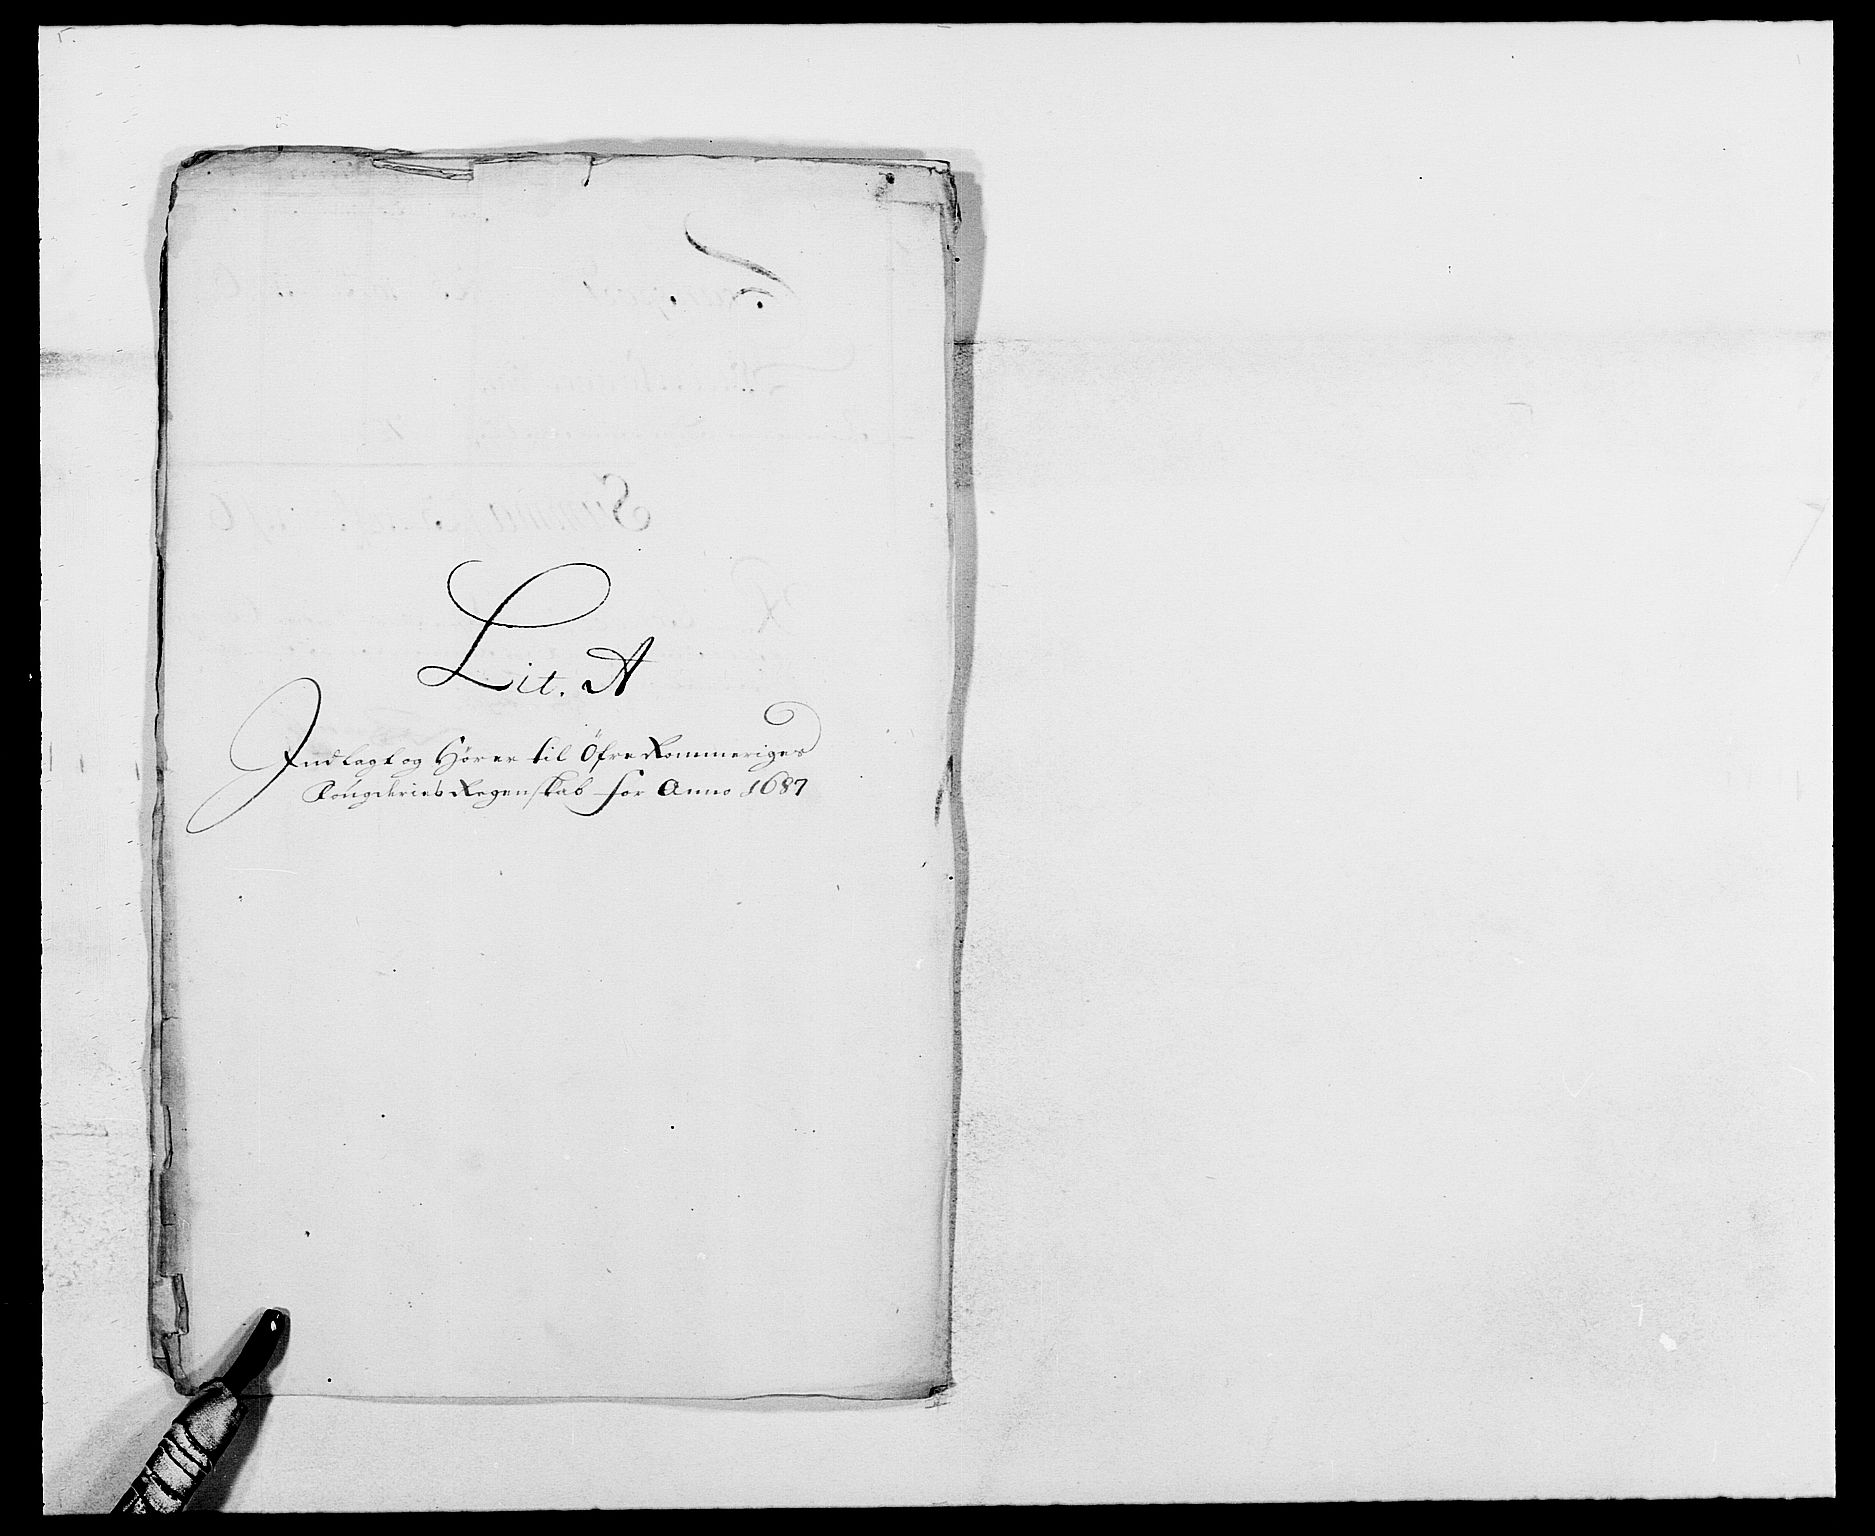 Lit. A
Indlagt og Hører til Öfre Rommeriges
Fougderies Regenskab for Anno 1687